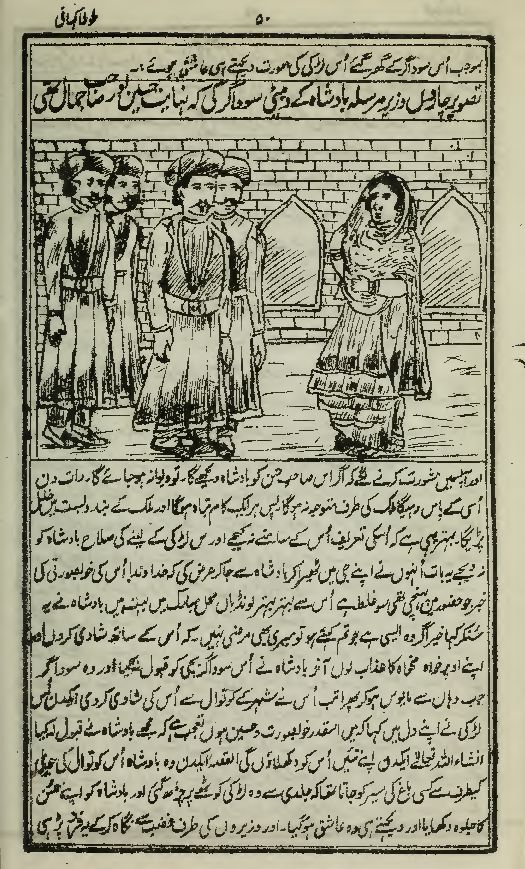 طوطا کہانی
۵۰
بموجب اُس سوداگر کے گھر گئے اُس لڑکی کی صورت دیکھتے ہی عاشق ہو گئے
تصویر چاروں وزیر مرسلہ بادشاہ کے دبیٹی سوداگر کی کہ نہایت حسین اور صاحب جمال تھی
اور آپسمیں مشورت کرنے لگے کہ اگر اس صاحب حسن کو بادشاہ دیکھے گا تو دیوانہ ہو جائے گا رات دن
اُسی کے پاس رہیگا ملک کی طرف متوجہ نہ ہوگا پس ہر ایک کام تباہ ہوگا اور ملک کے بندوبست میں خلل
پڑیگا بہتر یہی ہے کہ اُسکی تعریف اُس کے سامنے نہ کیجے اور اس لڑکی کے لینے کی صلاح بادشاہ کو
نہ دیجے یہ بات اُنہوں نے اپنے جی میں ٹھہرا کر بادشاہ سے جا کر عرض کی کہ خداوندا اُس کی خوبصورتی کی
خبر جو حضور میں پہنچی تھی سو غلط ہے اُس سے بہتر بہتر لونڈیاں محل مبارک میں بہت ہیں بادشاہ نے یہ
سُنکر کہا خیر اگر وہ ایسی ہے جو تم کہتے ہو تو میری بھی مرضی نہیں کہ اُس کے ساتھ شادی کروں اور
اپنے اوپر خواہ مخواہ کا عذاب لوں آخر بادشاہ نے اُس سوداگر بچی کو قبول نہ کیا اور وہ سوداگر
جب وہاں سے مایوس ہو کر پھرا تب اُس نے شہر کے کوتوال سے اُس کی شادی کر دی ایکدن اُس
لڑکی نے اپنے دل میں کہا کہ میں اسقدر خوبصورت و حسین ہوں تعجب ہے کہ مجھے بادشاہ نے قبول نہ کیا
انشاء اللہ تعالےٰ ایکدن اپنے تئیں اُس کو دکھلاؤں گی القصہ ایکدن وہ بادشاہ اُس کوتوال کی حویلی
کیطرف سے کسی باغ کی سیر کو جاتا تھا کہ جلدی سے وہ لڑکی کوٹھے پر چڑھ گئی اور بادشاہ کو اپنے حسن
کا جلوہ دکھایا اور دیکھتے ہی وہ عاشق ہو گیا۔ اور وزیروں کی طرف غضب سے نگاہ کر کے